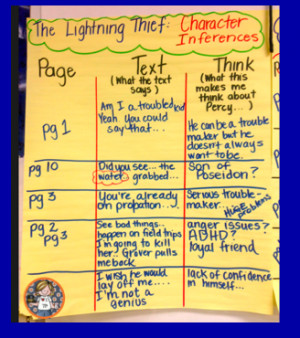 The Lightning Thief: Character
Inferences
Page
Text
(What the text
says)
Think
(What this
makes me
think about
Percy...)
pg 1
Am I a troubled kid
Yeah you could
say that...
He can be a trouble
maker but he
doesn't always
want to be.
pg 10
Did you see... the
water grabbed...
Son of
Poseidon?
pg 3
You're already
on probation...
Serious trouble-
maker...
HUGE problems
pg 2
pg 3
See bad things..
happen on field trips
I'm going to kill
her.. Grover pulls
me back
anger issues?
ADHD?
loyal friend
I wish he would
lay off me....
I'm not a
genius
lack of confidence
in himself...